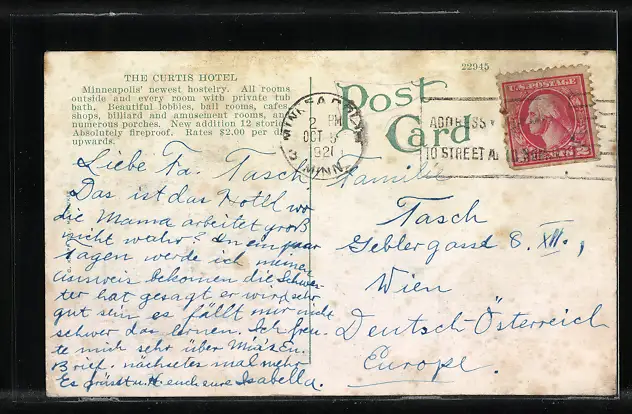 THE CURTIS HOTEL
Minneapolis' newest hostelry. All rooms
outside and every room with private tub
bath. Beautiful lobbies, ball rooms, cafes,
shops, billiard and amusement rooms, and
numerous porches. New addition 12 stories
Absolutely fireproof. Rates $2.00 per da
upwards.
22945
Post
Card
MINNEAPOLIS
2 PM
OCT 5
1920
MINN.
ADDRESS
TO STREET A
U.S. POSTAGE
CENTS 2
Liebe Fa. Tasch
Das ist das Hotel wo
die Mama arbeitet groß
nicht wahr? In ein paar
tagen werde ich meinen
ausweis bekomen die Schwes-
ter hat gesagt er wird sehr
gut sein es fällt mir nicht
schwer das lernen. Ich freu-
te mich sehr über
Brief. nächstes mal mehr
Es grüsst euch eure Isabella.
Familie
Tasch
Geblergasse 8. XII.,
Wien
Deutsch-Österreich
Europe.